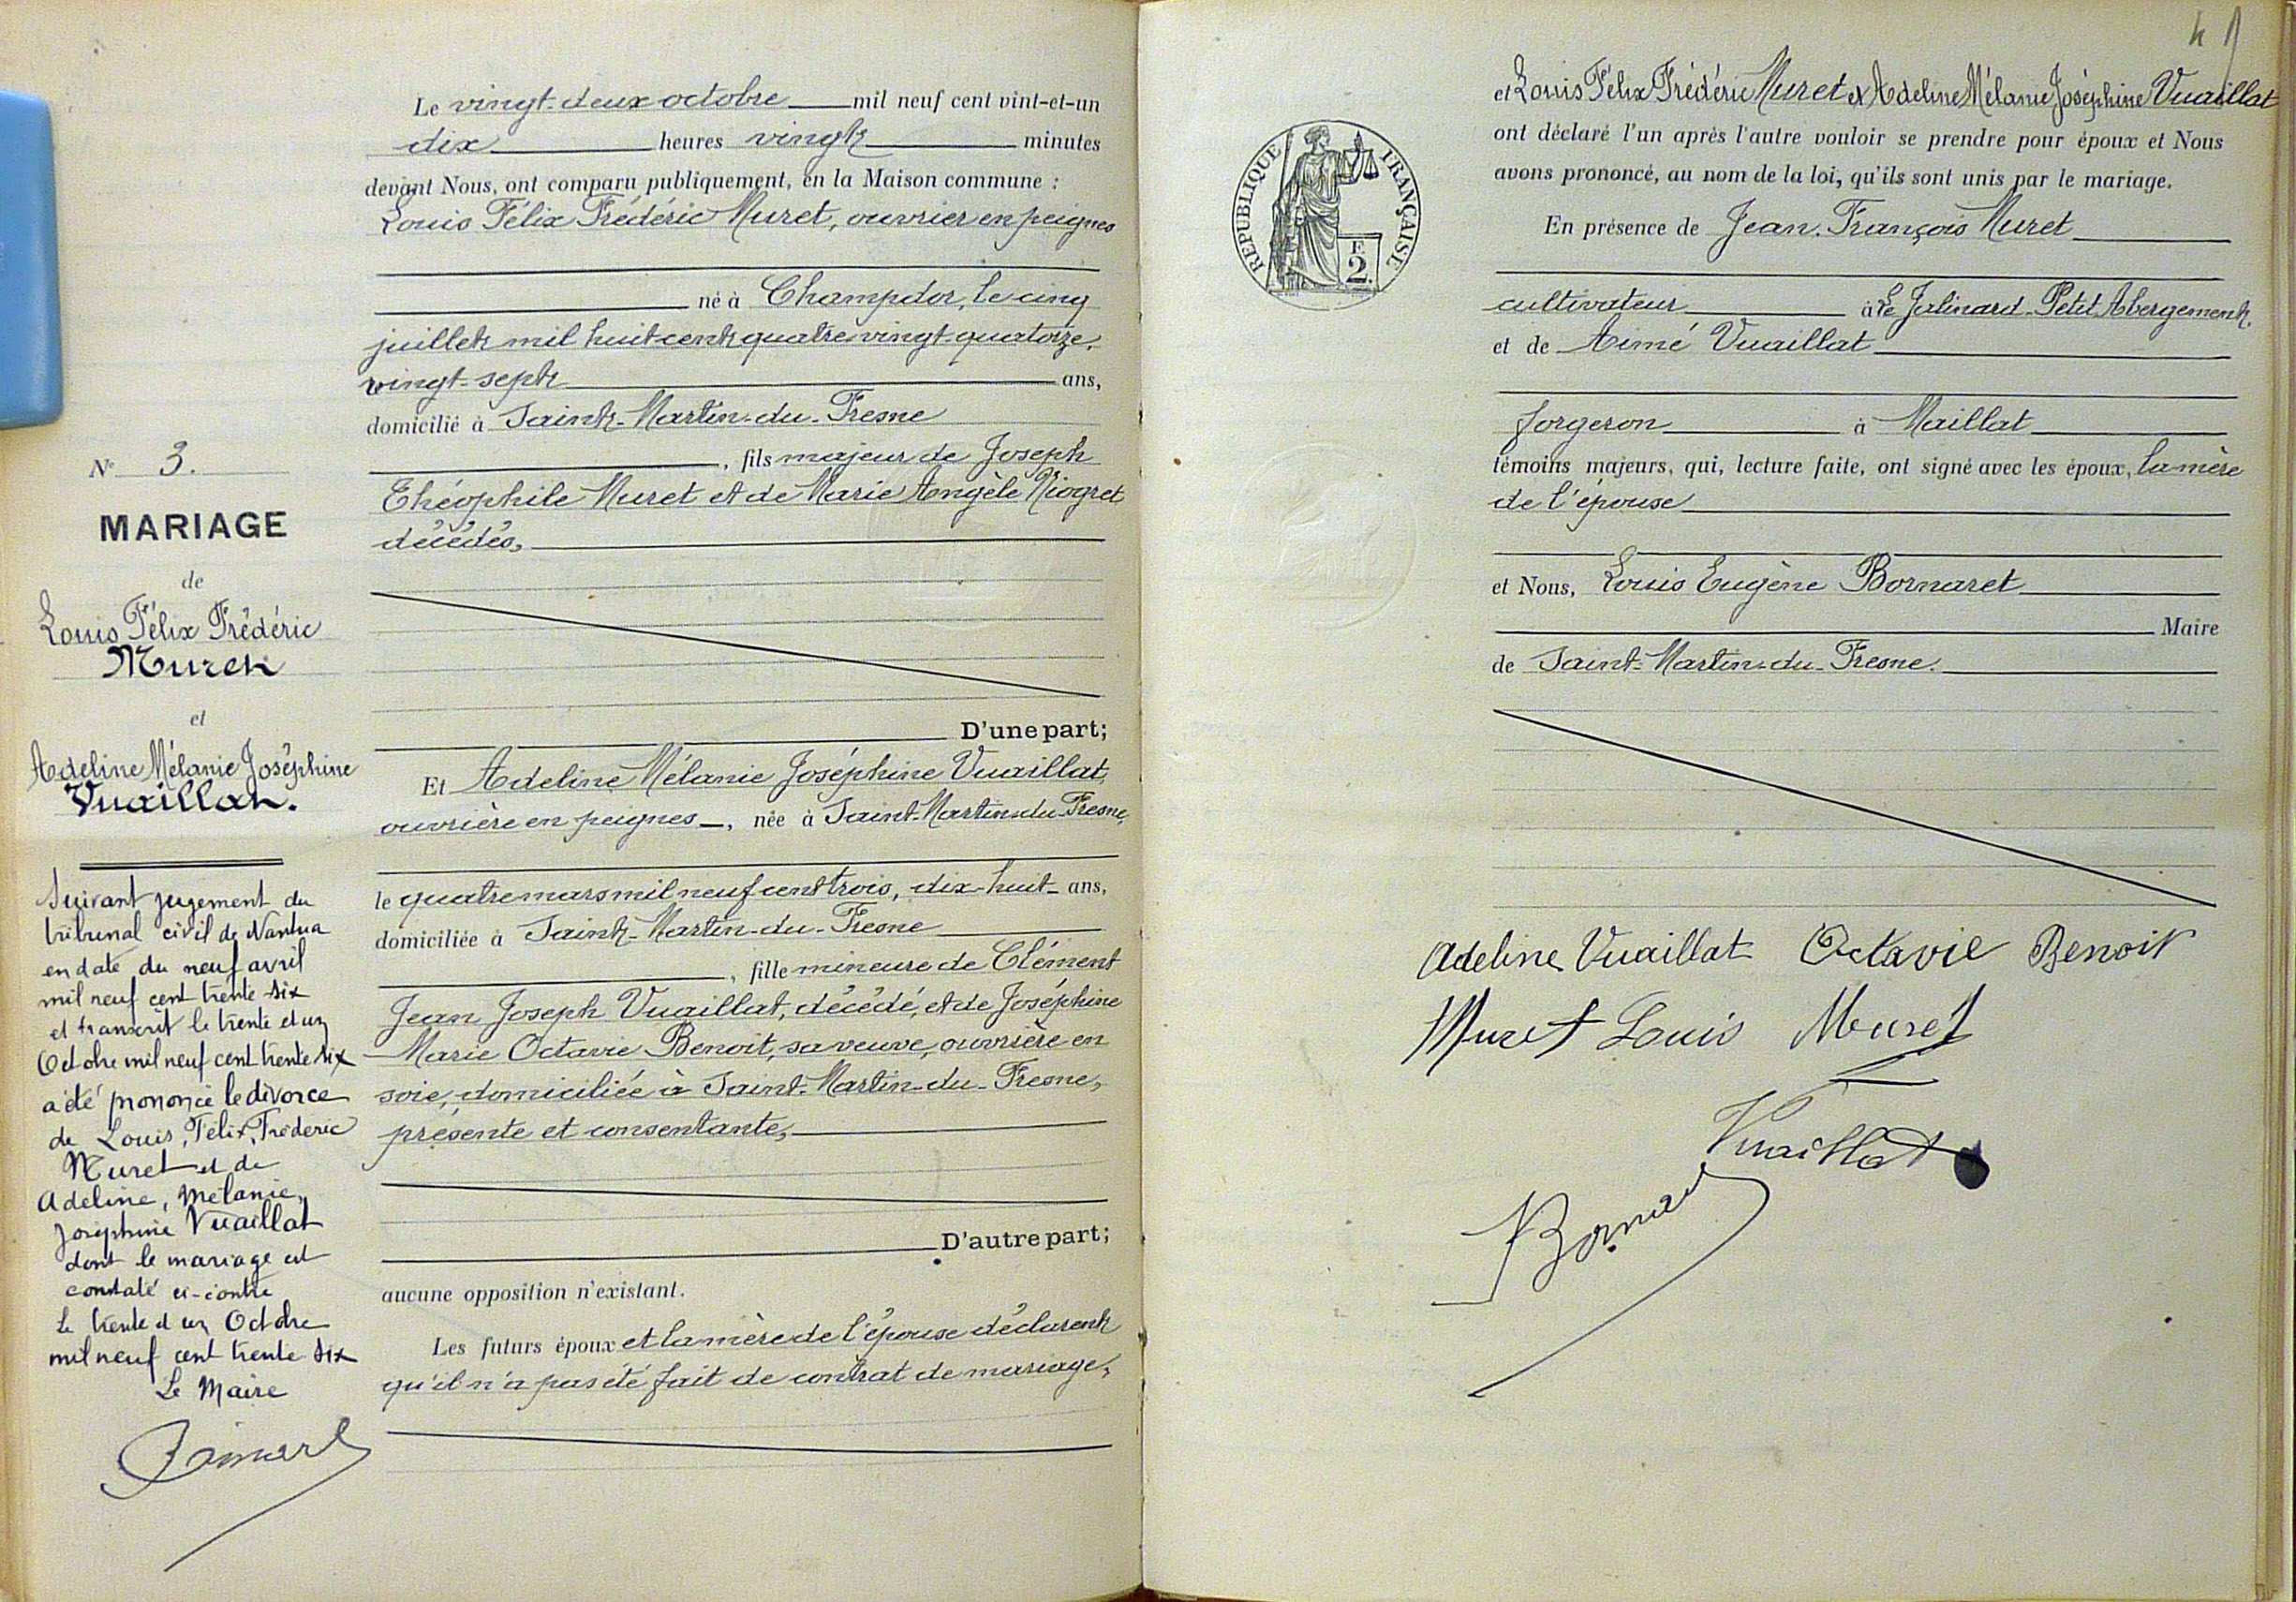 Le vingt-deux octobre mil neuf cent vint-et-un
dix heures vingt minutes
devant Nous, ont comparu publiquement, en la Maison commune :
Louis Félix Frédéric Muret, ouvrier en peignes
né à Champdor, le cinq
juillet mil huit cent quatre vingt-quatorze,
vingt-sept ans,
domicilié à Saint-Martin-du-Fresne
, fils majeur de Joseph
Théophile Muret et de Marie Angèle Niogret
décédés,
D'une part;
Et Adeline Mélanie Joséphine Vuaillat,
ouvrière en peignes, née à Saint-Martin-du-Fresne,
le quatre mars mil neuf cent trois, dix-huit ans,
domiciliée à Saint-Martin-du-Fresne
, fille mineure de Clément
Jean Joseph Vuaillat, décédé, et de Joséphine
Marie Octavie Benoit, sa veuve, ouvrière en
soie, domiciliée à Saint-Martin-du-Fresne,
présente et consentante,
D'autre part;
aucune opposition n'existant.
Les futurs époux et la mère de l'épouse déclarent
qu'il n'a pas été fait de contrat de mariage,
N° 3.
MARIAGE
de
Louis Félix Frédéric
Muret
et
Adeline Mélanie Joséphine
Vuaillat.
Suivant jugement du
tribunal civil de Nantua
en date du neuf avril
mil neuf cent trente six
et transcrit le trente et un
Octobre mil neuf cent trente six
a été prononcé le divorce
de Louis, Félix, Frédéric
Muret et de
Adeline, Mélanie,
Joséphine Vuaillat
dont le mariage est
constaté ci-contre
Le trente et un Octobre
mil neuf cent trente six
Le Maire
41
RÉPUBLIQUE FRANÇAISE
F.
2.
et Louis Félix Frédéric Muret et Adeline Mélanie Joséphine Vuaillat
ont déclaré l'un après l'autre vouloir se prendre pour époux et Nous
avons prononcé, au nom de la loi, qu'ils sont unis par le mariage.
En présence de Jean-François Muret
cultivateur à Le Jalinard-Petit Abergement,
et de Aimé Vuaillat
forgeron à Maillat
témoins majeurs, qui, lecture faite, ont signé avec les époux, la mère
de l'épouse
et Nous, Louis Eugène Bornaret
Maire
de Saint-Martin-du-Fresne.
Adeline Vuaillat Octavie Benoit
Muret Louis Muret
Vuaillat